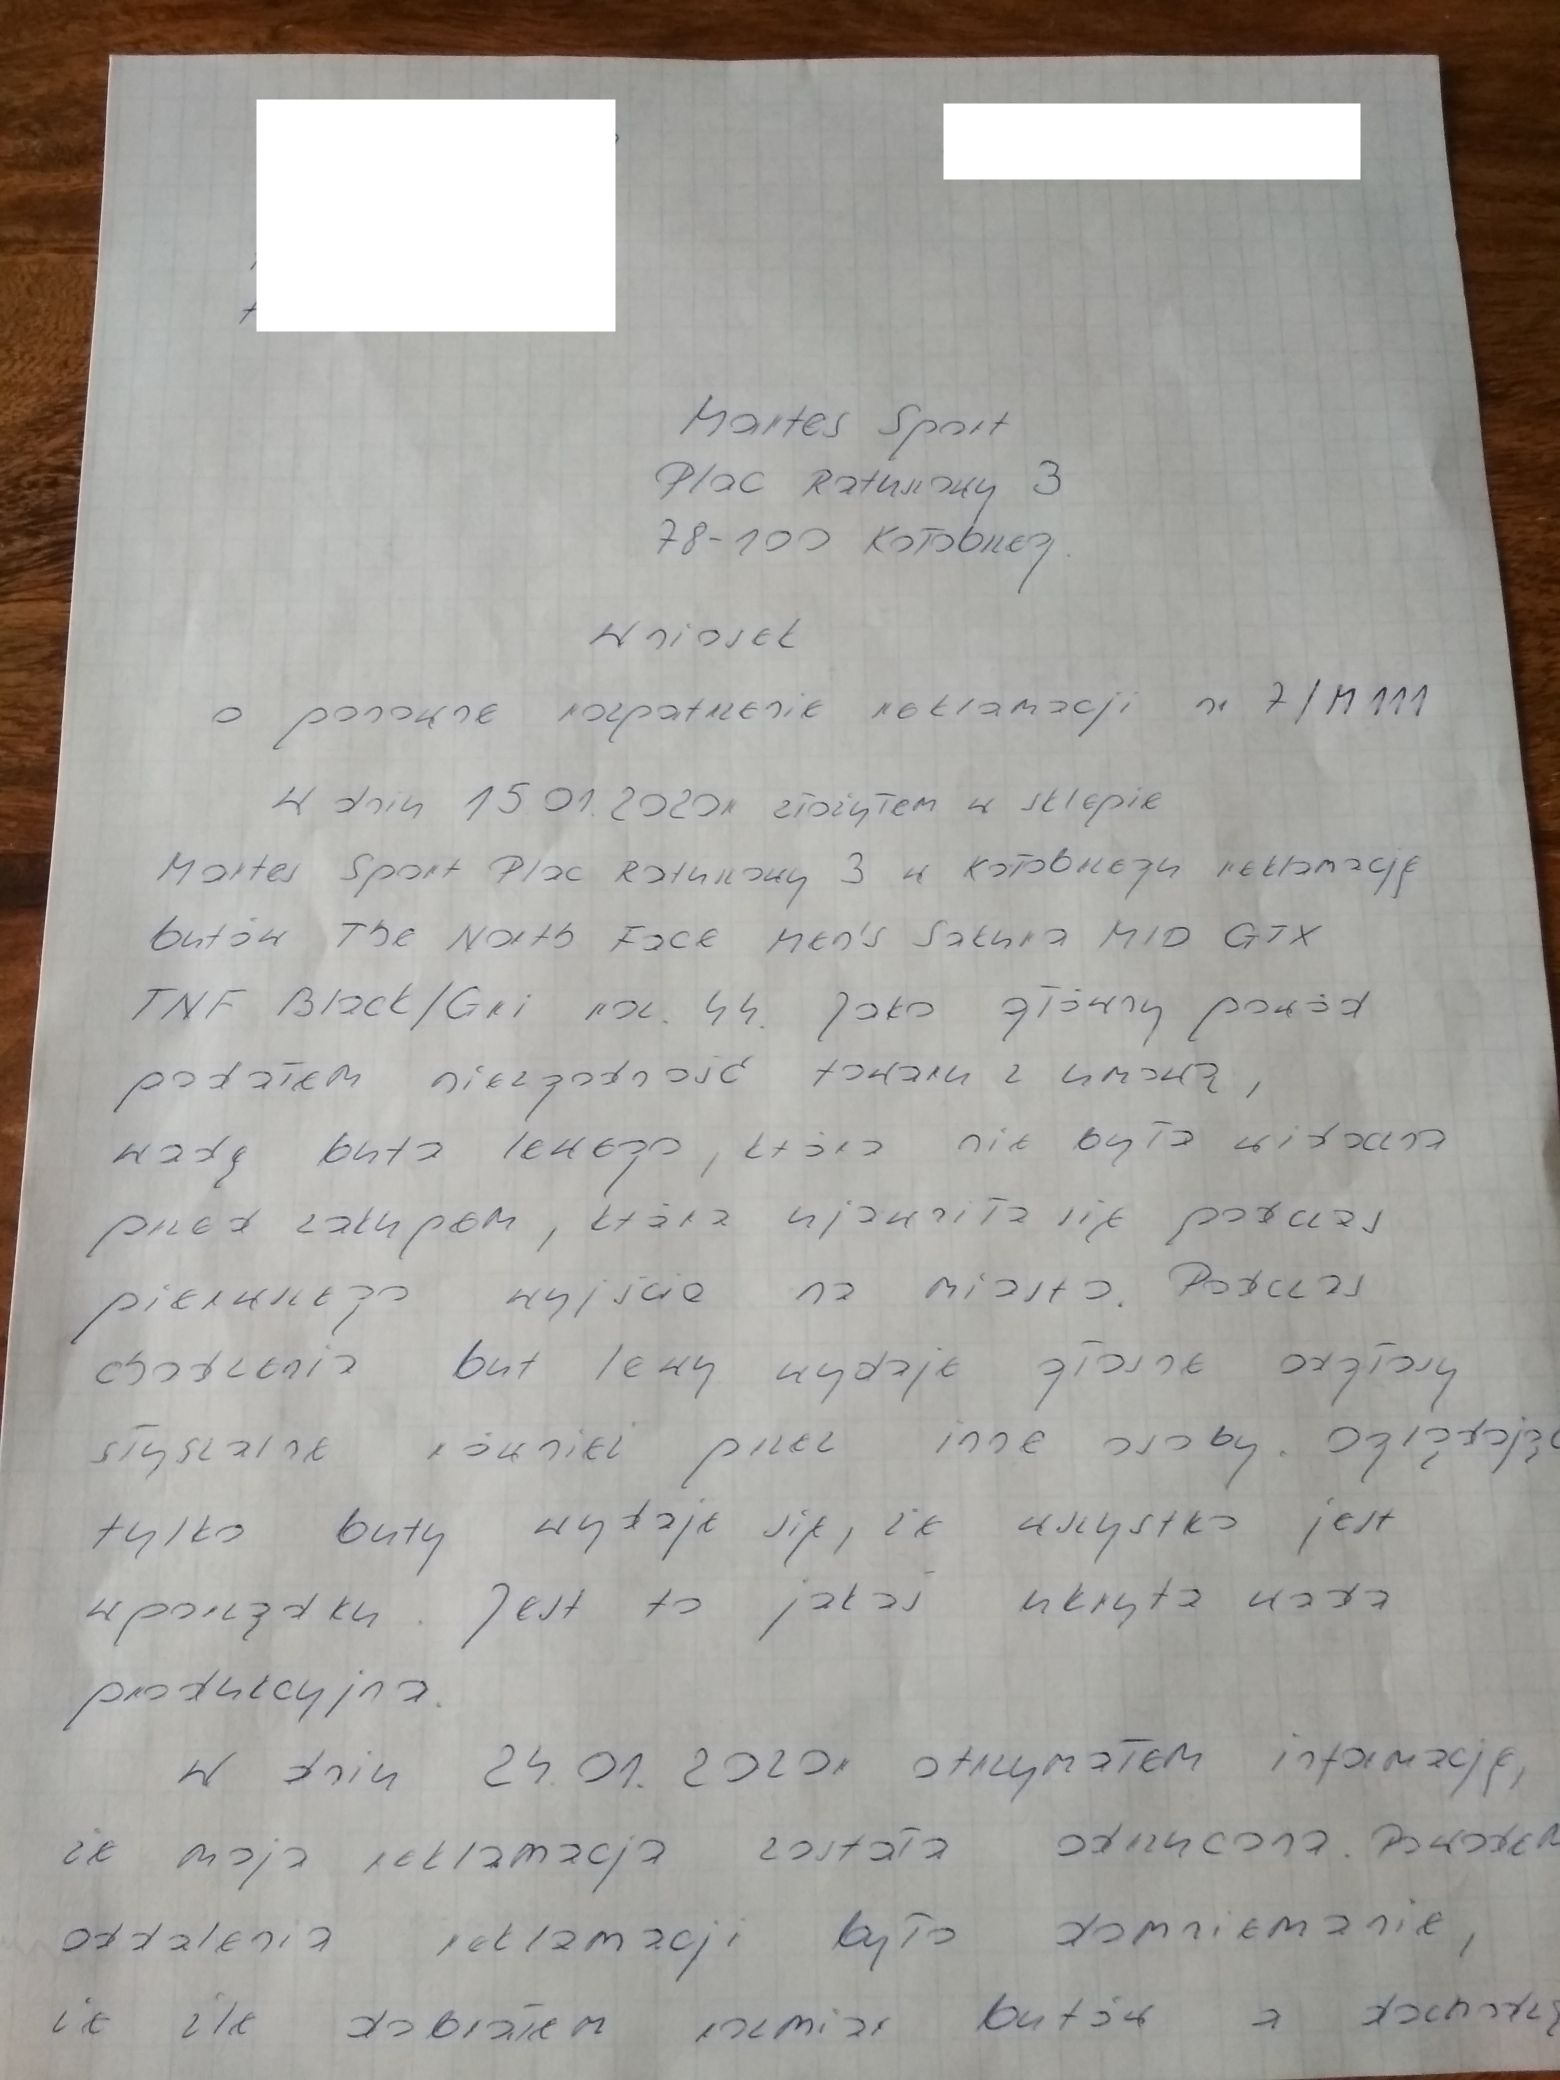 Martes Sport
Plac Ratuszowy 3
78-100 Kołobrzeg.
Wniosek
o ponowne rozpatrzenie reklamacji nr 7/M111
W dniu 15.01.2020r złożyłem w sklepie
Martes Sport Plac Ratuszowy 3 w Kołobrzegu reklamację
butów The North Face Men's Sakura MID GTX
TNF Black/Gri roz. 44. Jako główny powód
podałem niezgodność towaru z umową,
wadę buta lewego, która nie była widoczna
przed zakupem, która ujawniła się podczas
pierwszego wyjścia na miasto. Podczas
chodzenia but lewy wydaje głośne odgłosy
słyszalne również przez inne osoby. Oglądając
tylko buty wydaje się, że wszystko jest
wporządku. Jest to jakaś ukryta wada
produkcyjna.
W dniu 24.01.2020r otrzymałem informację,
że moja reklamacja została odrzucona. Powodem
oddalenia reklamacji było domniemanie,
że źle dobrałem rozmiar butów a dochodzą